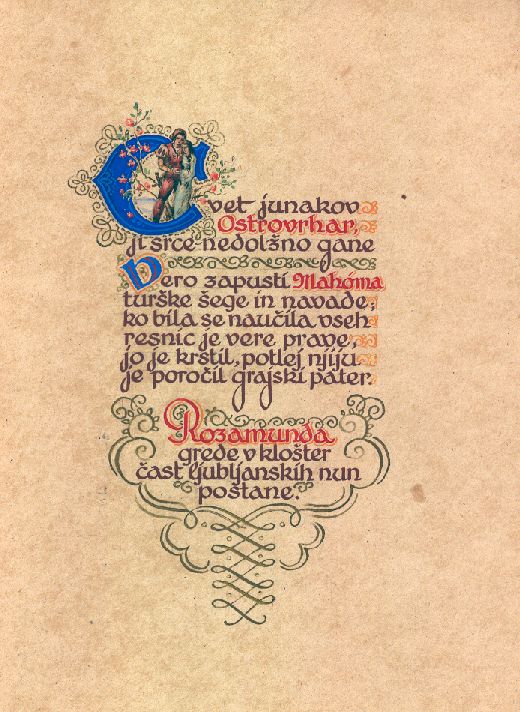 Cvet junakov
Ostrovrhar,
ji srce nedolžno gane
Vero zapusti Mahóma
turške šege in navade;
ko bila se naučila vseh
resnic je vere prave,
jo je krstil, potlej njiju
je poročil grajski pater.
Rozamunda
grede v klošter
čast ljubljanskih nun
postane.